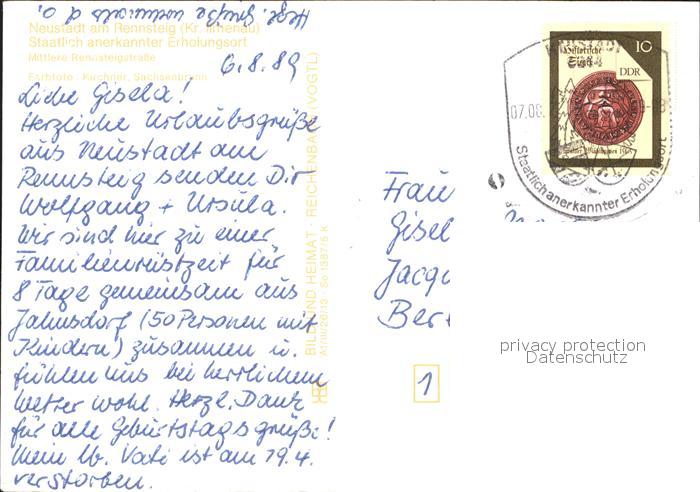 Herzl. Grüße
Neustadt am Rennsteig (Kr. Ilmenau)
Staatlich anerkannter Erholungsort
Mittlere Rennsteigstraße
Farbfoto: Kirchner, Sachsenbrunn
6.8.89
Liebe Gisela!
Herzliche Urlaubsgrüße
aus Neustadt am
Rennsteig senden Dir
Wolfgang + Ursula.
Wir sind hier zu einer
Familienrüstzeit für
8 Tage gemeinsam aus
Jahnsdorf (50 Personen mit
Kindern) zusammen u.
fühlen uns bei herrlichem
Wetter wohl. Herzl. Dank
für alle Geburtstagsgrüße!
Mein lb. Vati ist am 19.4.
verstorben.
BILD UND HEIMAT · REICHENBACH (VOGTL)
Historische
Siegel
10
DDR
NEUSTADT
07.08.
Staatlich anerkannter Erholungsort
Frau
Gisel
Jacq
Ber
1
privacy protection
Datenschutz